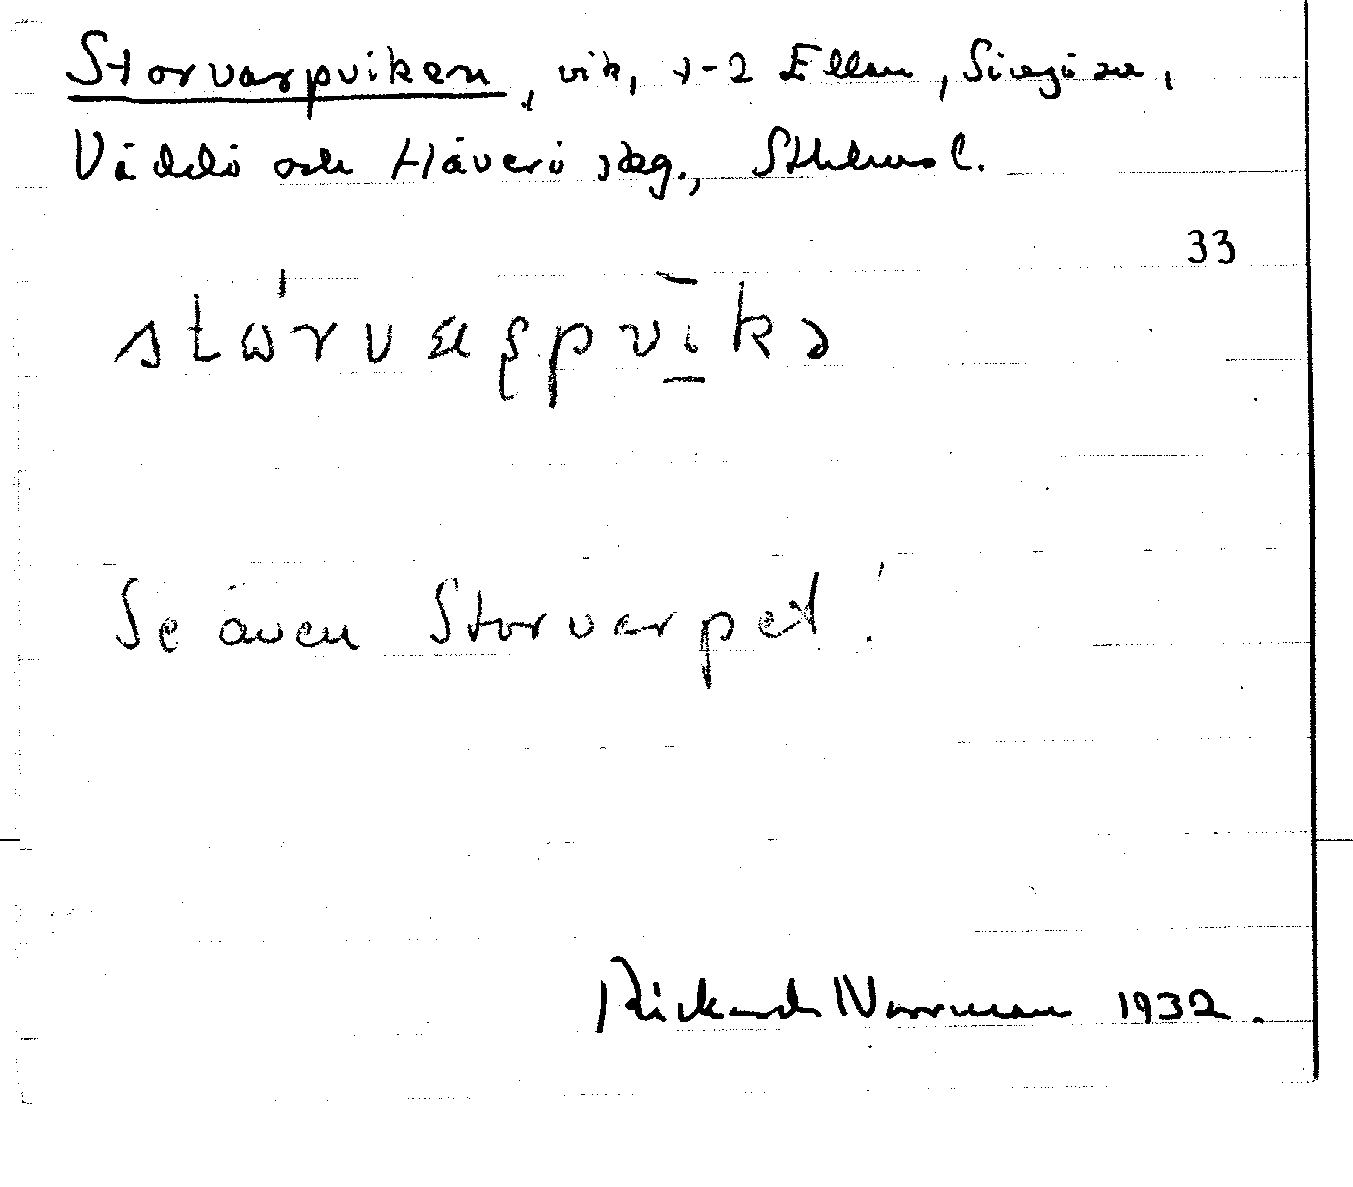 Storvarpviken, vik, 1-2 Ellan, Singö sn,
Väddö och Häverö skg., Sthlms l.
33
stω̍rvαρpvīkə
Se även Storvarpet!
Rickard Norrman 1932.